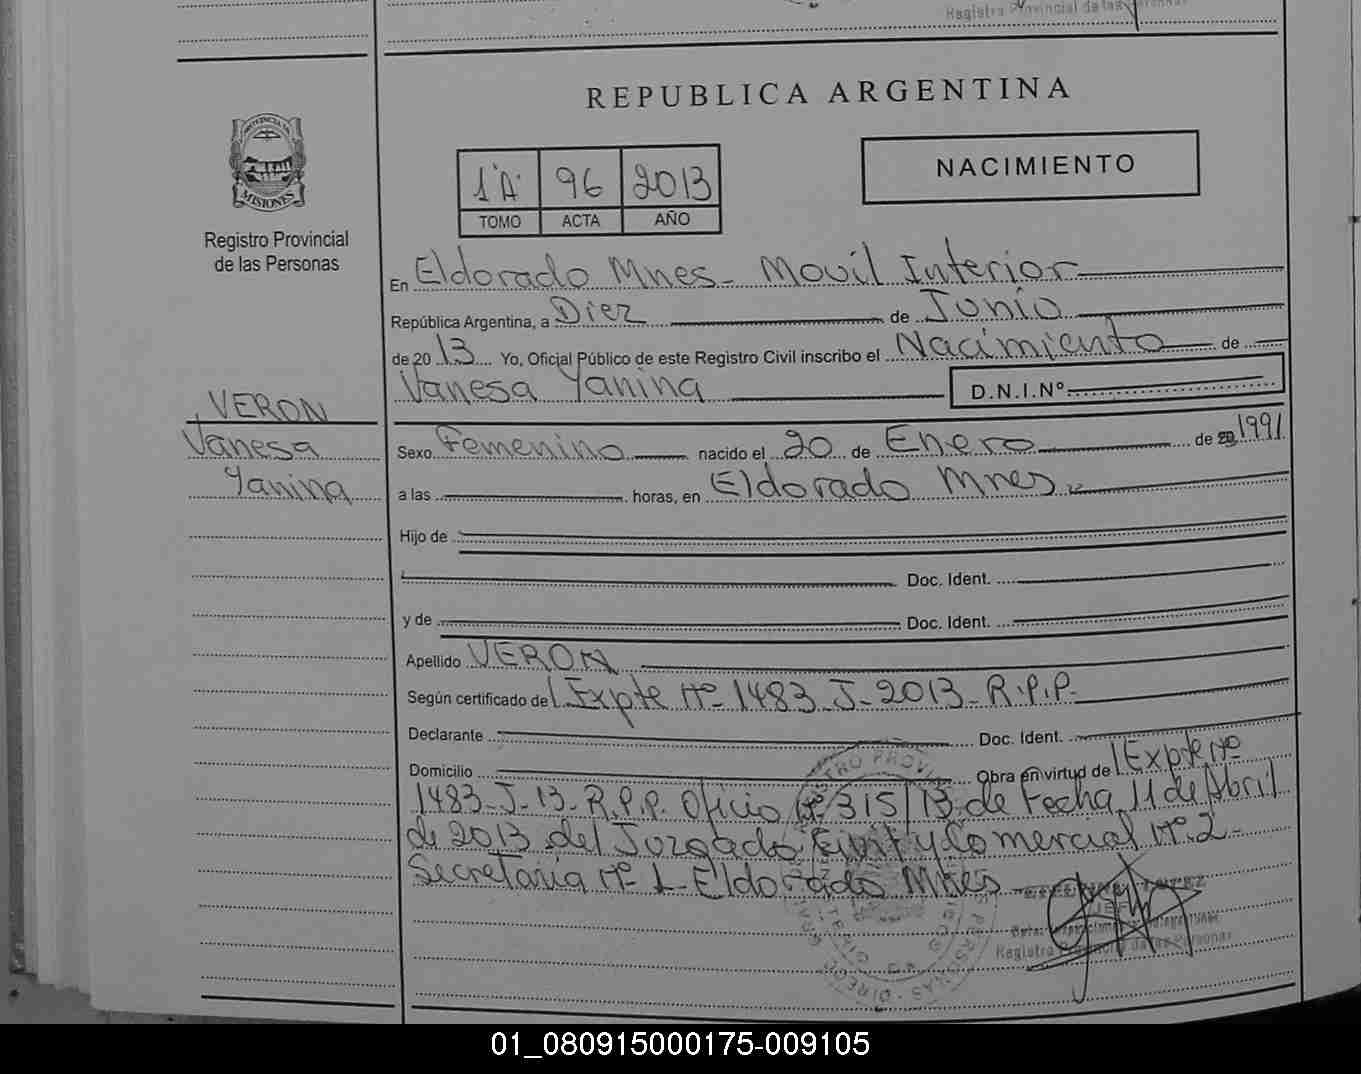 Registro Provincial de las Personas
REPUBLICA ARGENTINA
PROVINCIA DE
MISIONES
Registro Provincial
de las Personas
1ºA 96 2013
TOMO ACTA AÑO
NACIMIENTO
En Eldorado Mnes- Movil Interior
República Argentina, a Diez de Junio
de 2013 Yo, Oficial Público de este Registro Civil inscribo el Nacimiento de
Vanesa Yanina D.N.I.Nº
VERON
Vanesa
Yanina
Sexo Femenino nacido el 20 de Enero de 20 1991
a las horas, en Eldorado Mnes
Hijo de
Doc. Ident.
y de Doc. Ident.
Apellido VERON
Según certificado de Expte Nº 1483-J-2013-R.P.P-
Declarante Doc. Ident.
Domicilio Obra en virtud de Expte Nº
1483-J-13-R.P.P. Oficio Nº 315/13 de Fecha 11 de Abril
de 2013 del Juzgado Civil y Comercial Nº 2-
Secretaria Nº 1-Eldorado Mnes
JEFE
Registro Provincial de las Personas
01_080915000175-009105